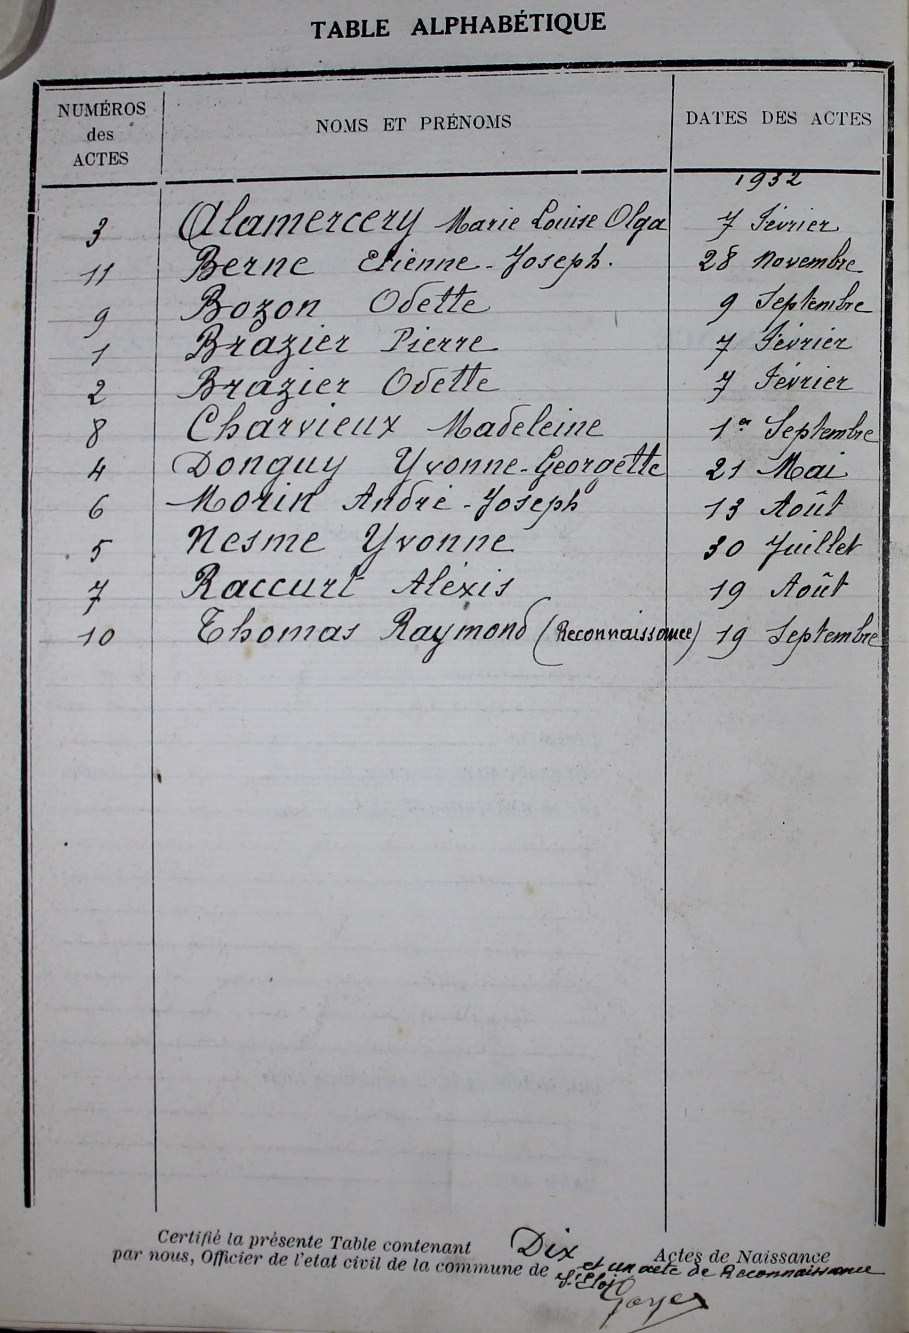 TABLE ALPHABÉTIQUE
NUMÉROS des ACTES NOMS ET PRÉNOMS DATES DES ACTES
1932
3 Alamercery Marie Louise Olga 7 Février
11 Berne Etienne-Joseph. 28 Novembre
9 Bozon Odette 9 Septembre
1 Brazier Pierre 7 Février
2 Brazier Odette 7 Février
8 Charvieux Madeleine 1er Septembre
4 Donguy Yvonne-Georgette 21 Mai
6 Morin André-Joseph 13 Août
5 Nesme Yvonne 30 Juillet
7 Raccurt Aléxis 19 Août
10 Thomas Raymond (Reconnaissance) 19 Septembre
Certifié la présente Table contenant Dix Actes de Naissance
par nous, Officier de l'etat civil de la commune de et un acte de Reconnaissance
St Eloi